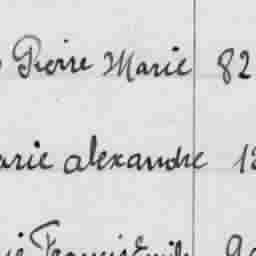 Pierre Marie 82
arie alexandre 1
Francis Emile 9